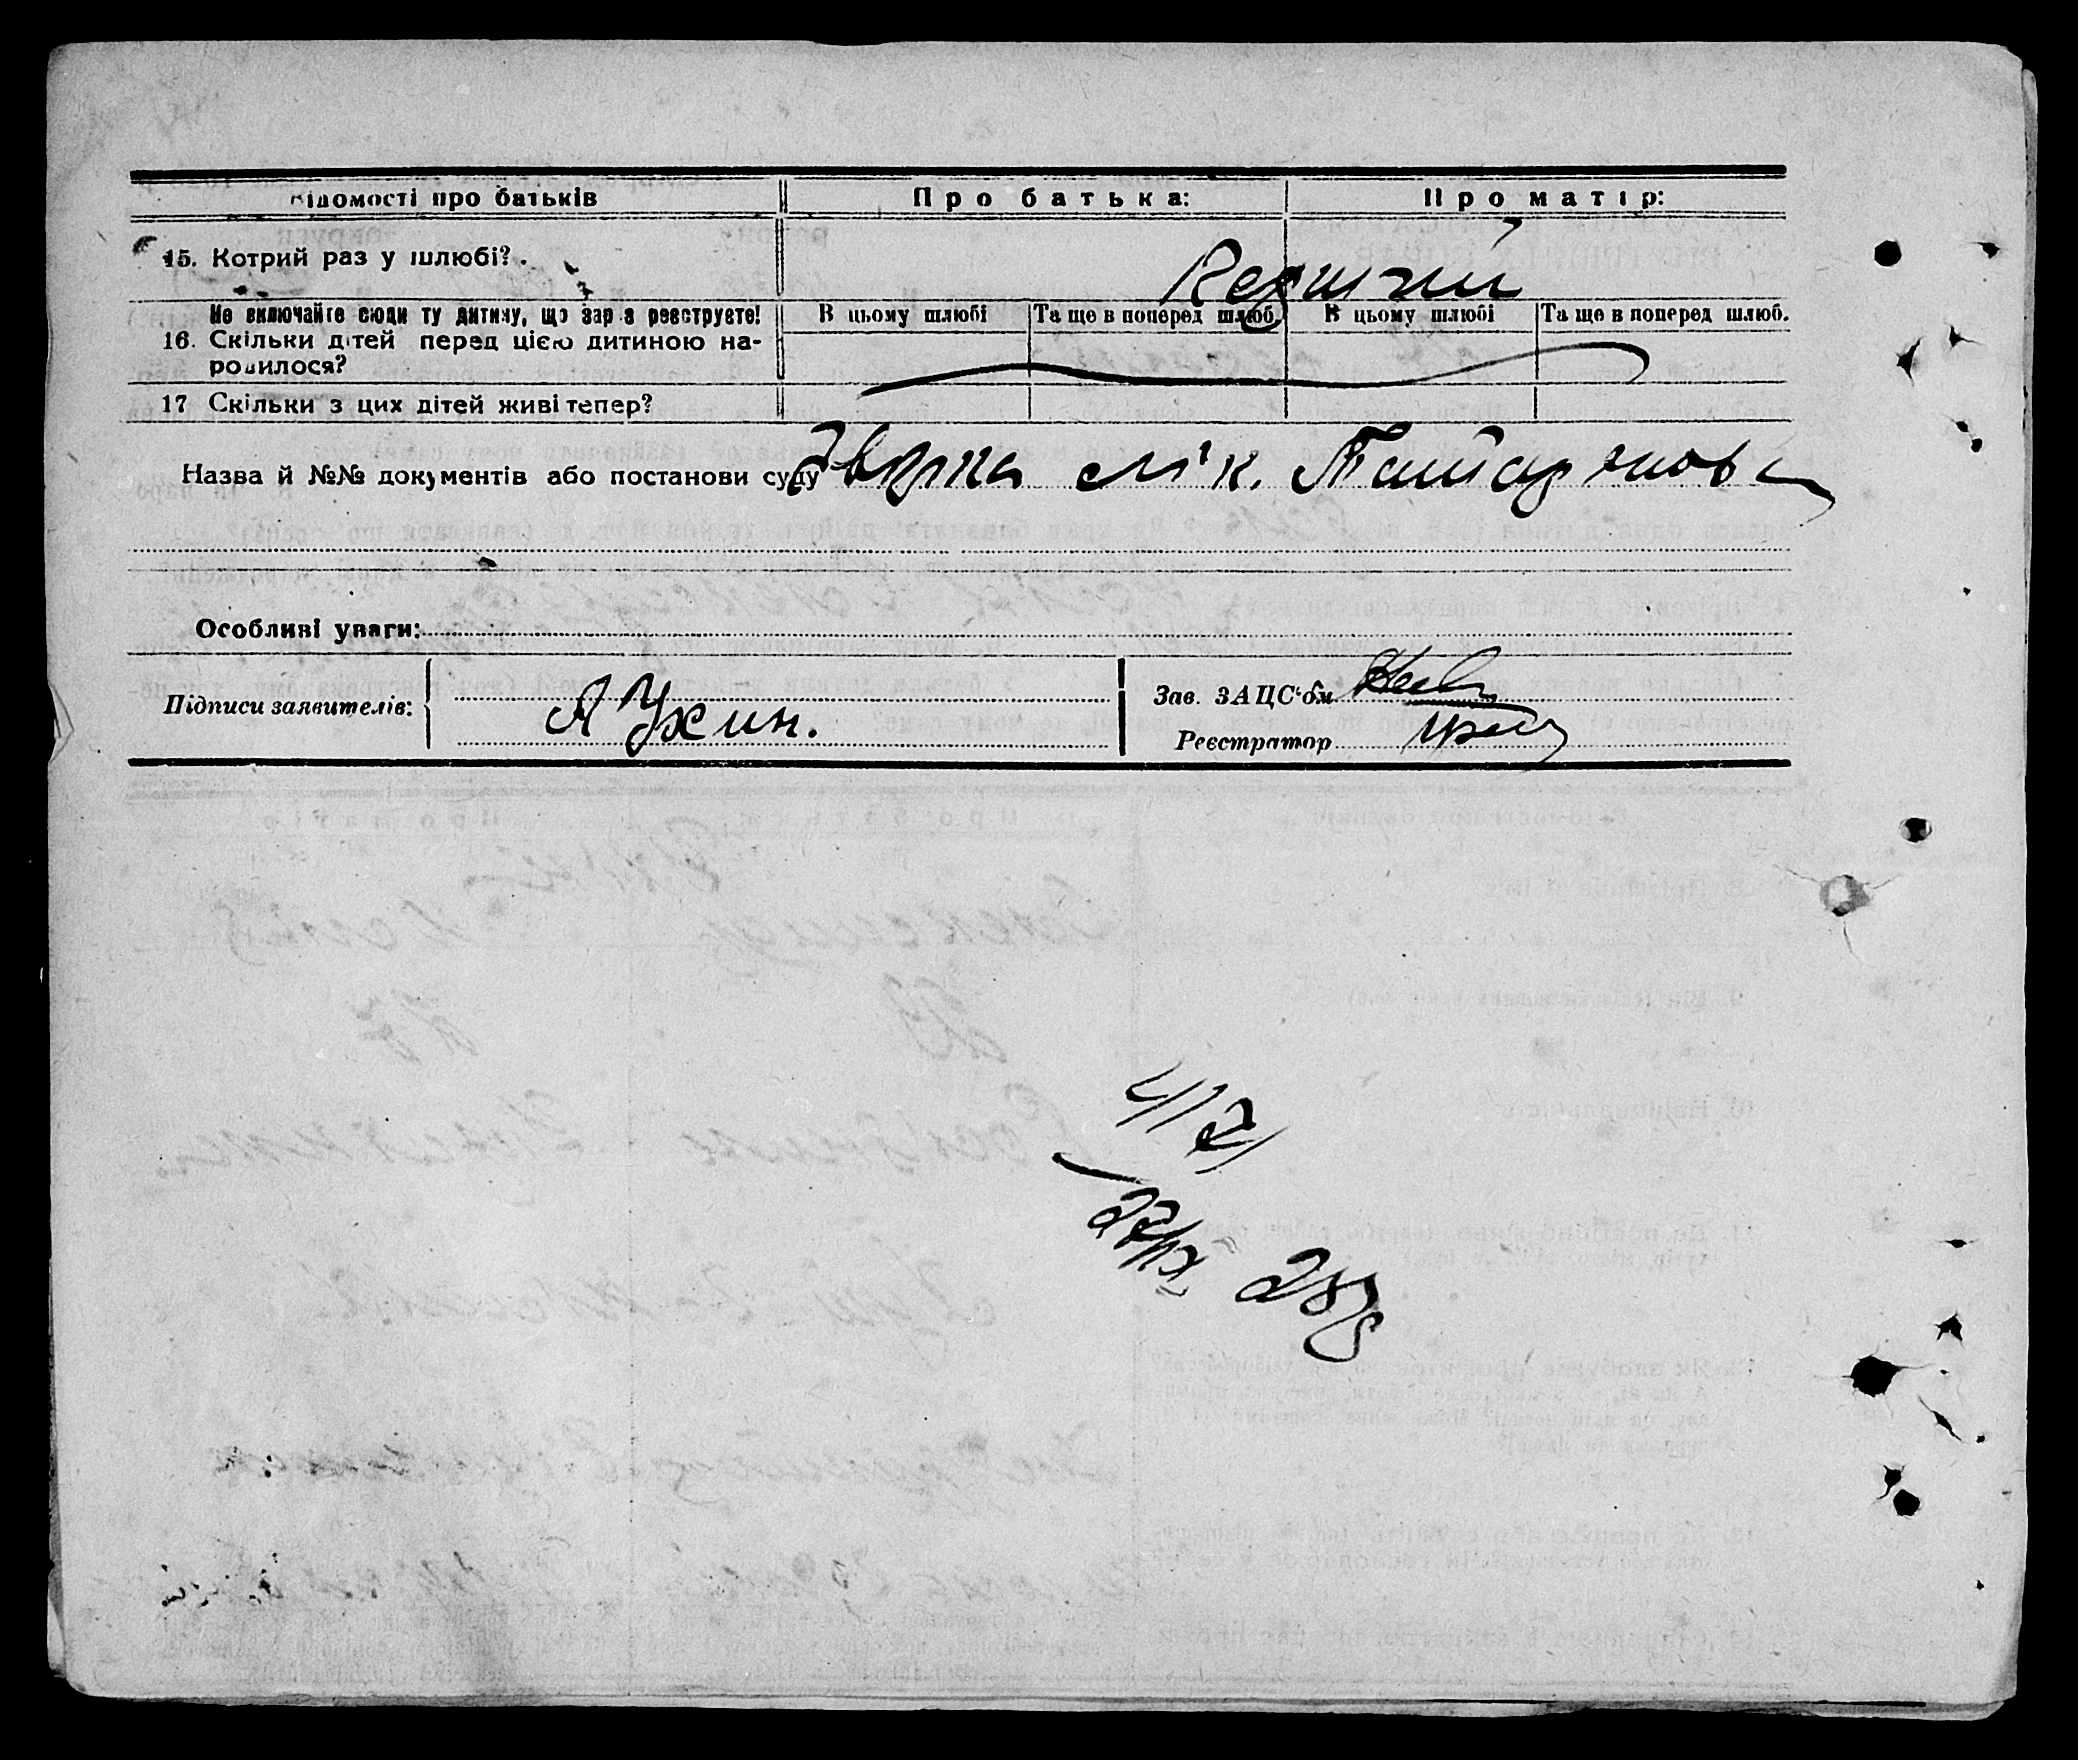 Відомості про батьків Про батька: Про матір:
15. Котрий раз у шлюбі?.
Не включайте сюди ту дитину, що зараз реєструєте! В цьому шлюбі Та ще в поперед шлюб. В цьому шлюбі Та ще в поперед шлюб.
16. Скільки дітей перед цією дитиною на-
родилося?
17 Скільки з цих дітей живі тепер?
Назва й №№ документів або постанови суду лік.
Особливі уваги:
Підписи заявителів: А Ухин. Зав. ЗАЦС'ом
Реєстратор
4121
22/IX 28